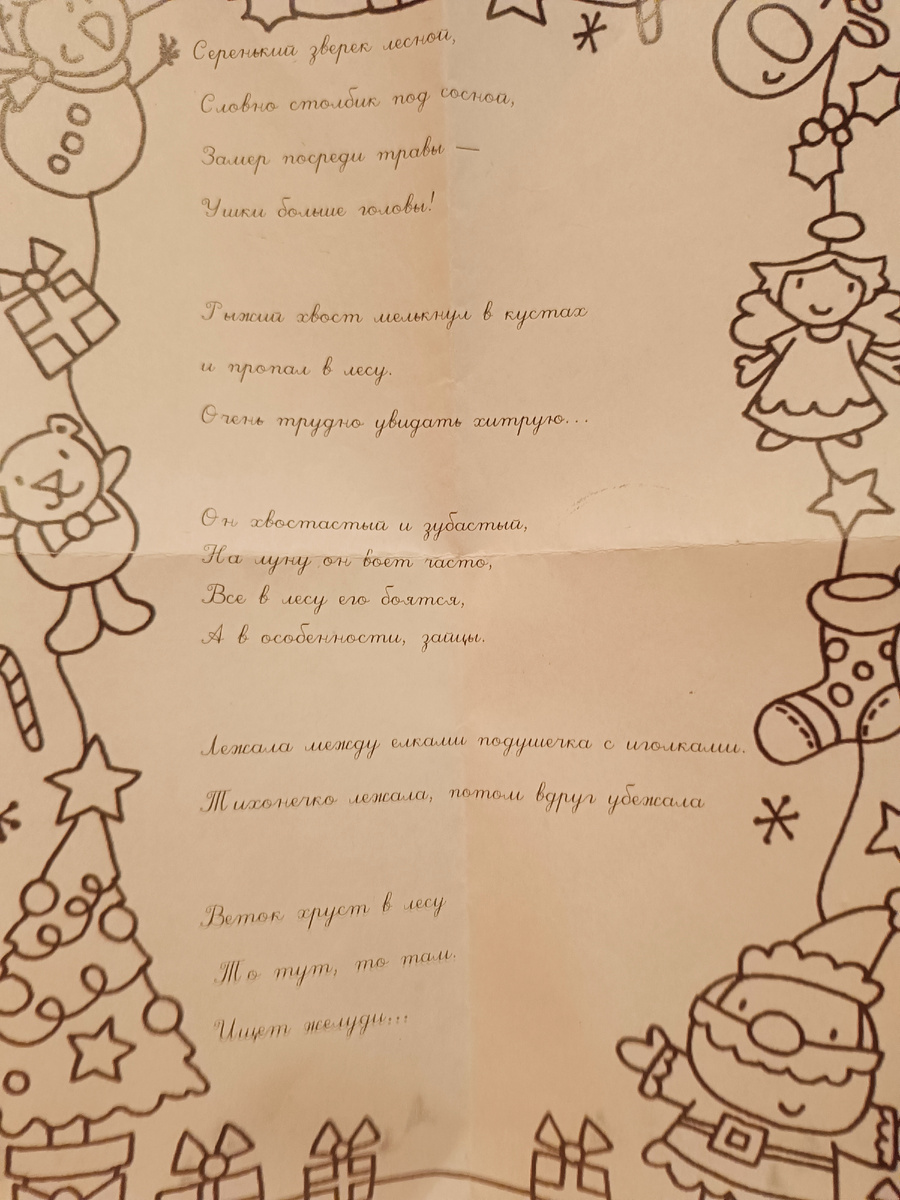 Серенький зверек лесной,
Словно столбик под сосной,
Замер посреди травы —
Ушки больше головы!
Рыжий хвост мелькнул в кустах
и пропал в лесу.
Очень трудно увидать хитрую...
Он хвостастый и зубастый,
На луну он воет часто,
Все в лесу его боятся,
А в особенности, зайцы.
Лежала между елками подушечка с иголками.
Тихонечко лежала, потом вдруг убежала
Веток хруст в лесу
То тут, то там.
Ищет желуди...